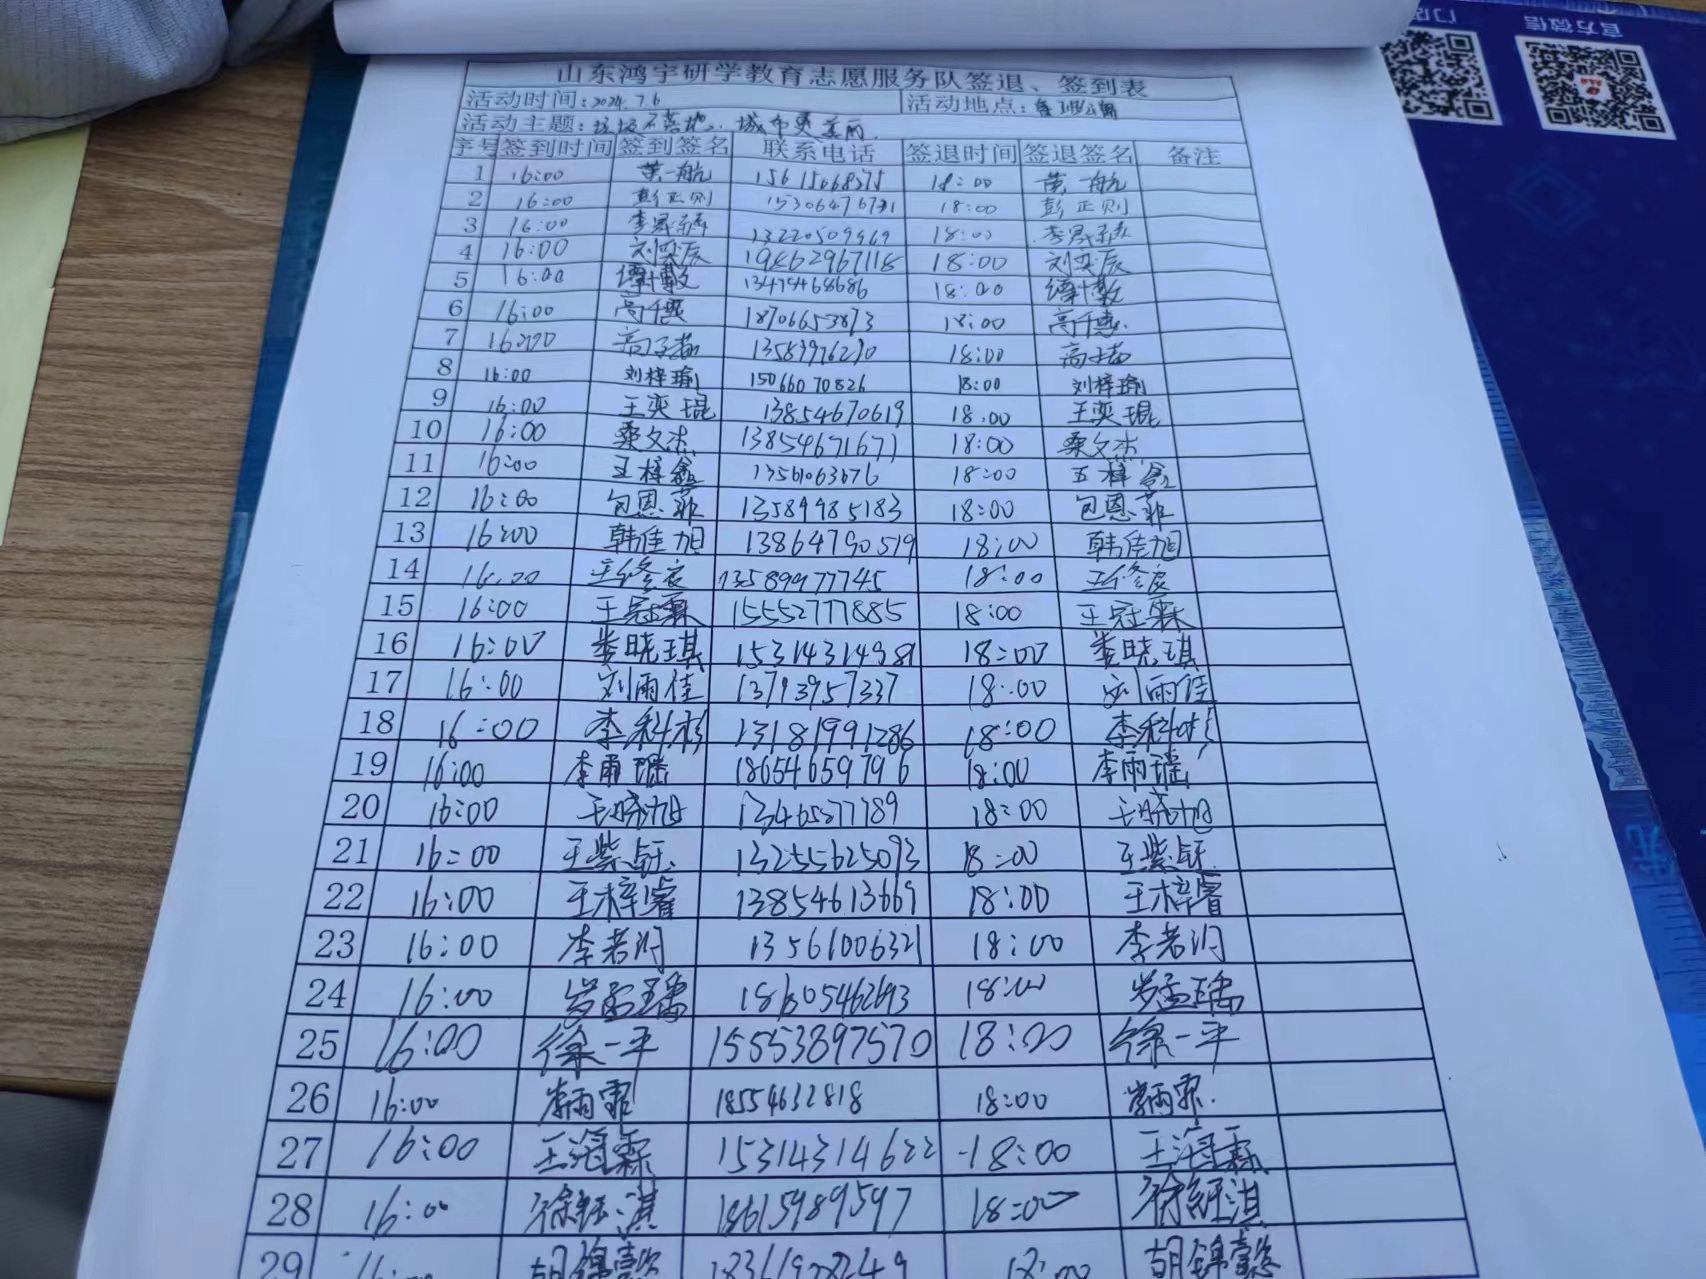 官方微信
山东鸿宇研学教育志愿服务队签退、签到表
活动时间：2024.7.6 活动地点：
活动主题：垃圾不落地、城市更美丽
序号 签到时间 签到签名 联系电话 签退时间 签退签名 备注
1 16:00 黄一航 15615068375 18:00 黄一航
2 16:00 彭正则 15306476731 18:00 彭正则
3 16:00 13220509969 18:00
4 16:00 刘奕辰 19862967118 18:00 刘奕辰
5 16:00 13475468686 18:00
6 16:00 高千惠 18706653873 18:00 高千惠
7 16:00 13583976290 18:00
8 16:00 刘梓瑜 15066070826 18:00 刘梓瑜
9 16:00 王奕琨 13854670619 18:00 王奕琨
10 16:00 桑文杰 13854671671 18:00 桑文杰
11 16:00 王梓鑫 13561063676 18:00 王梓鑫
12 16:00 包恩菲 13589985183 18:00 包恩菲
13 16:00 韩佳旭 13864790519 18:00 韩佳旭
14 16:00 13589977745 18:00
15 16:00 王冠霖 15552777885 18:00 王冠霖
16 16:00 娄晓琪 15314314981 18:00 娄晓琪
17 16:00 刘雨佳 13793957337 18:00 刘雨佳
18 16:00 李科彤 13181991286 18:00 李科彤
19 16:00 李雨瑶 18654659796 18:00 李雨瑶
20 16:00 王晓旭 13465877789 18:00 王晓旭
21 16:00 王紫钰 13255625093 18:00 王紫钰
22 16:00 王梓睿 13854613669 18:00 王梓睿
23 16:00 13561006321 18:00
24 16:00 岁孟瑀 18605462693 18:00 岁孟瑀
25 16:00 徐一平 15553897570 18:00 徐一平
26 16:00 李雨霏 18554632818 18:00 李雨霏
27 16:00 王海霖 15314314622 18:00 王海霖
28 16:00 徐钰淇 18615989597 18:00 徐钰淇
29 胡锦懿 18:00 胡锦懿